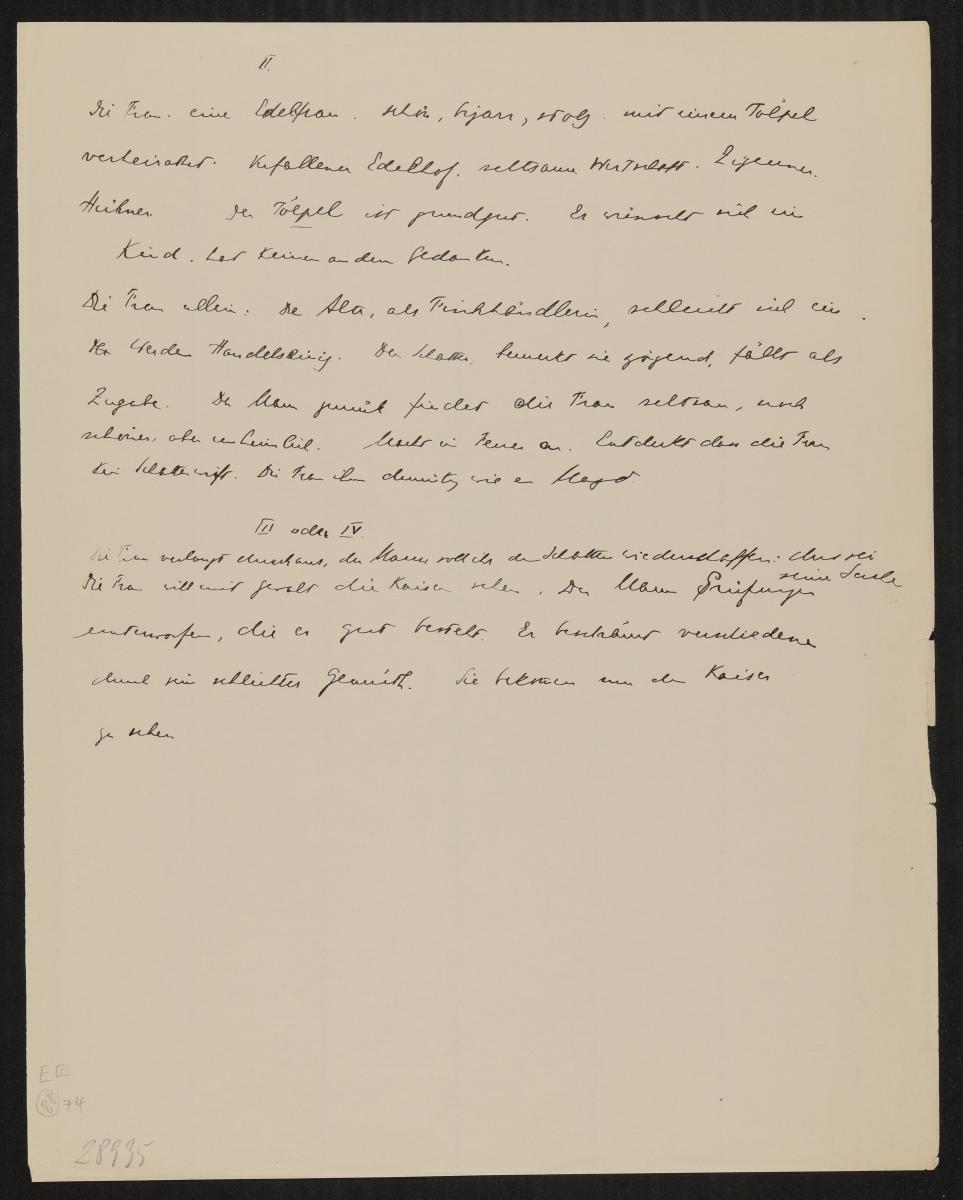 II.
Die Frau. eine Edelfrau. schön, bizarr, stolz. mit einem Tölpel
verheiratet. Verfallener Edelhof. seltsame Wirtschaft. Zigeuner.
Hühner. Der Tölpel ist grundgut. Er wünscht sich ein
Kind. hat keinen andern Gedanken.
Die Frau allein: Die Alte, als Fischhändlerin, schleicht sich ein.
Sie werden Handelseinig. Den Schatten, bemerkt sie zögernd, fällt als
Zugabe. Der Mann zurück findet die Frau seltsam, noch
schöner, aber unheimlich. Macht ein Feuer an. Entdeckt dass die Frau
kein Schatten wirft. Die Frau ihm demütig wie e Magd
III oder IV.
Die Frau verlangt durchaus, der Mann soll ihr den Schatten wiederschaffen: das sei
seine Sache
Die Frau will mit gewalt die Kaiserin sehen. Der Mann Prüfungen
unterworfen, die er gut besteht. Er beschämt verschiedene
durch sein schlichtes Gemüth. Sie bekommen nun den Kaiser
zu sehen
E III
74
28935